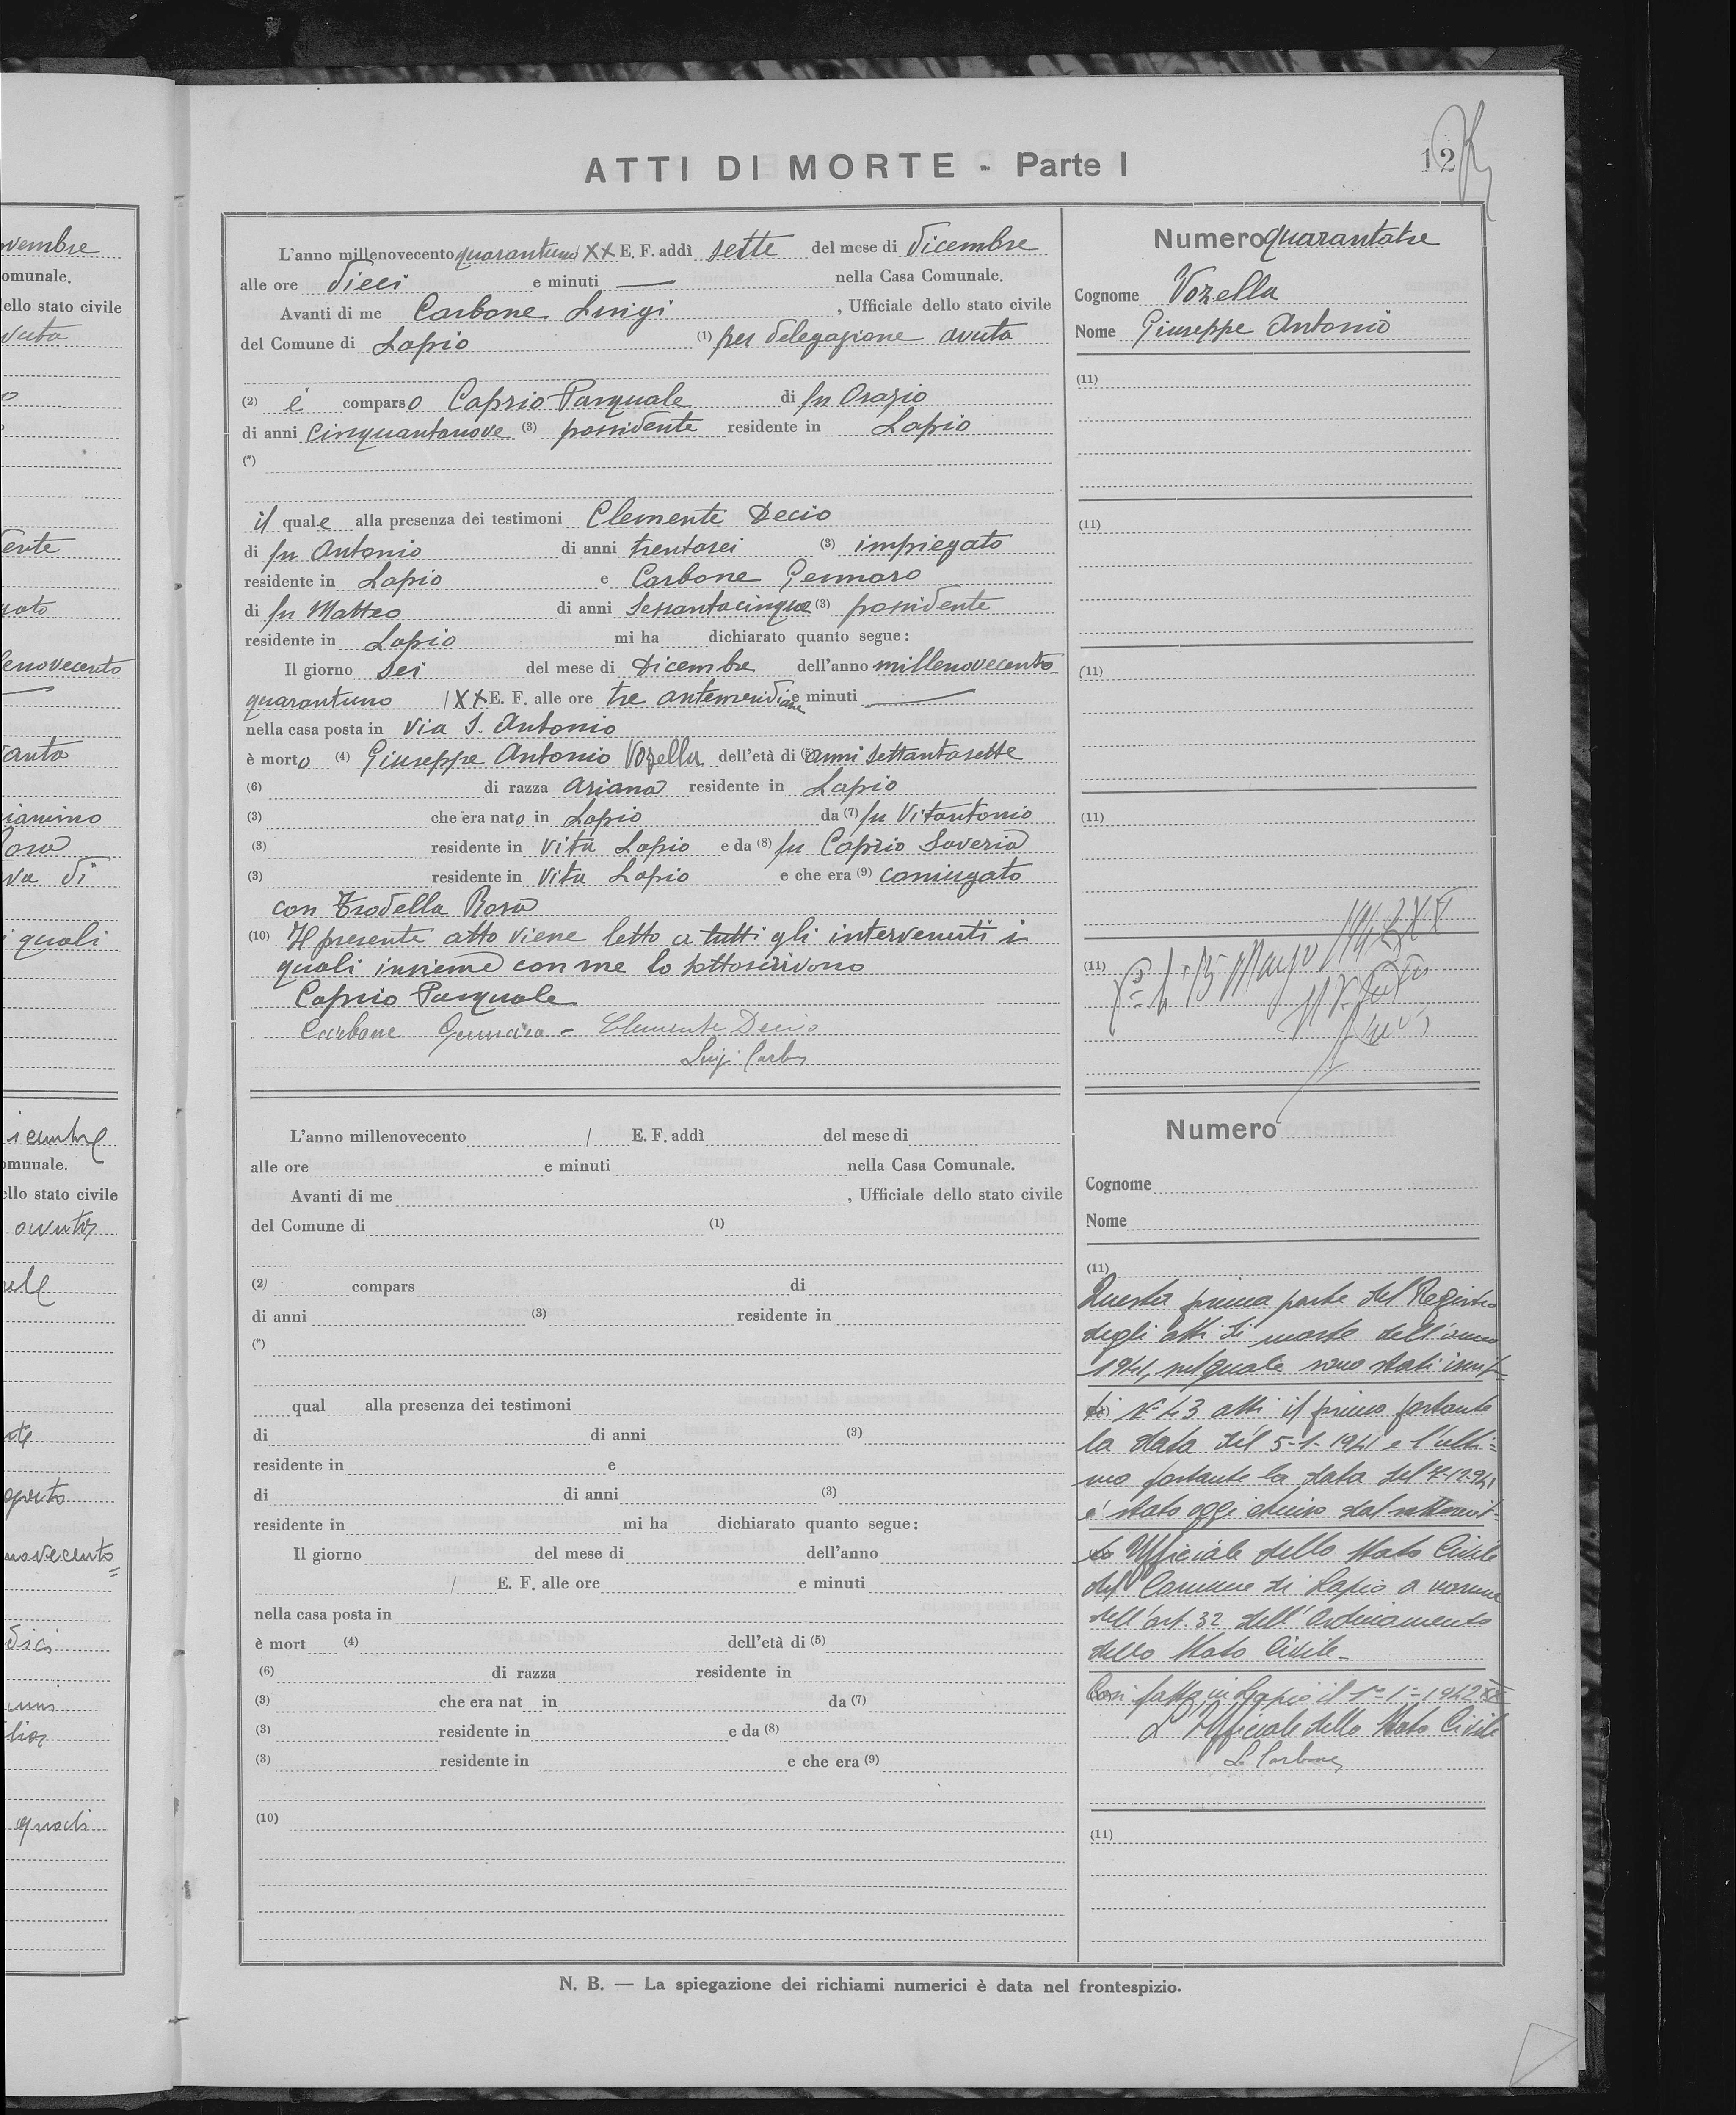 ATTI DI MORTE - Parte I
12
vembre
omunale.
ello stato civile
vuta
ente
lenovecento
anta
iamino
va di
i quali
omuuale.
ello stato civile
novecento
quali
L'anno millenovecento quarantuno XX E. F. addì sette del mese di Dicembre
alle ore Dieci e minuti — nella Casa Comunale.
Avanti di me Carbone Luigi , Ufficiale dello stato civile
del Comune di Lapio (1) per delegazione avuta
(2) è comparso Caprio Pasquale di fu Orazio
di anni cinquantanove (3) possidente residente in Lapio
(*)
il quale alla presenza dei testimoni Clemente Decio
di fu Antonio di anni trentasei (3) impiegato
residente in Lapio e Carbone Gennaro
di fu Matteo di anni sessantacinque (3) possidente
residente in Lapio mi ha dichiarato quanto segue:
Il giorno sei del mese di Dicembre dell'anno millenovecento
quarantuno / XX E. F. alle ore tre antemeridiane e minuti —
nella casa posta in Via S. Antonio
è morto (4) Giuseppe Antonio Vozella dell'età di (5) anni settantasette
(6) di razza ariana residente in Lapio
(3) che era nato in Lapio da (7) fu Vitantonio
(3) residente in vita Lapio e da (8) fu Caprio Saveria
(3) residente in vita Lapio e che era (9) coniugato
con Trodella Rosa
(10) Il presente atto viene letto a tutti gli intervenuti i
quali insieme con me lo sottoscrivono
Caprio Pasquale
Carbone Gennaro - Clemente Decio
Luigi Carb
Numero quarantatre
Cognome Vozella
Nome Giuseppe Antonio
(11)
(11)
(11)
(11)
(11)
L'anno millenovecento / E. F. addì del mese di
alle ore e minuti nella Casa Comunale.
Avanti di me , Ufficiale dello stato civile
del Comune di (1)
(2) compars di
di anni (3) residente in
(*)
qual alla presenza dei testimoni
di di anni (3)
residente in e
di di anni (3)
residente in mi ha dichiarato quanto segue:
Il giorno del mese di dell'anno
/ E. F. alle ore e minuti
nella casa posta in
è mort (4) dell'età di (5)
(6) di razza residente in
(3) che era nat in da (7)
(3) residente in e da (8)
(3) residente in e che era (9)
(10)
Numero
Cognome
Nome
(11)
Questa prima parte del Registro
degli atti di morte dell'anno
1941, nel quale sono stati iscrit=
ti N° 43 atti il primo portante
la data del 5-1-1941 e l'ulti=
mo portante la data del 7-12-941
è stato oggi chiuso dal sottoscrit-
to Ufficiale dello Stato Civile
del Comune di Lapio a norma
dell'art. 32 dell'Ordinamento
dello Stato Civile.
Così fatto in Lapio il 1°-1°-1942 XX
L'Ufficiale dello Stato Civile
L. Carbone
(11)
N. B. — La spiegazione dei richiami numerici è data nel frontespizio.